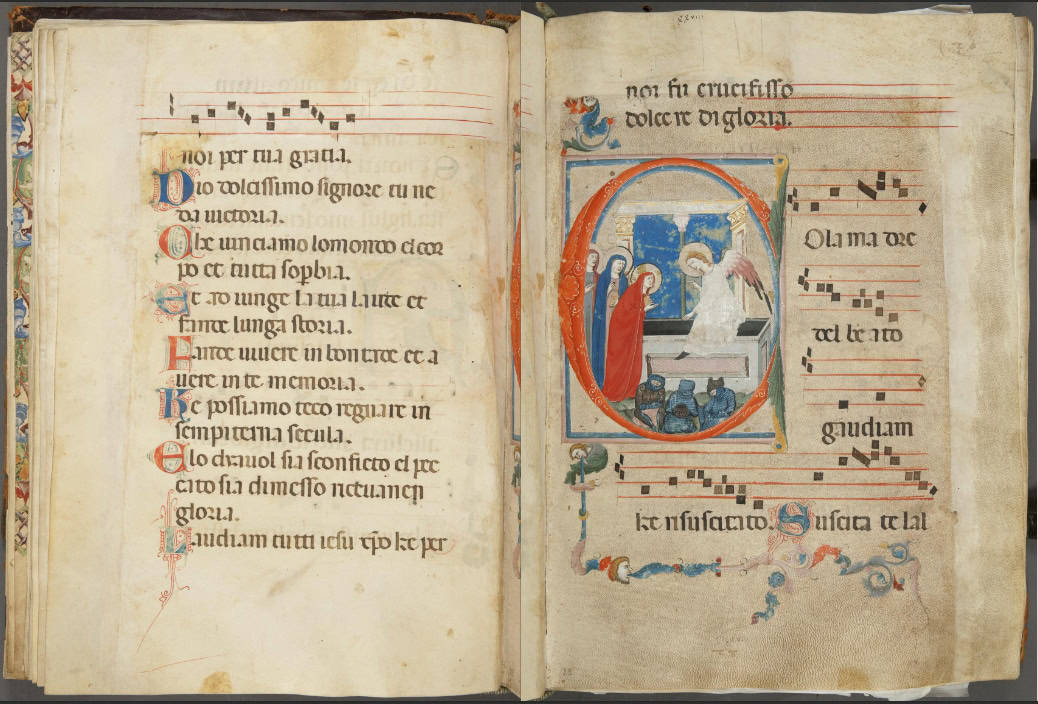 noi per tua gratia.
Dio dolcissimo signore tu ne
da uictoria.
Che uinciamo lomondo el cor
po et tutta soꝑbia.
Et ad iunge la tua laude et
fande lunga storia.
Fande uiuere in bontade et a
uere in te memoria.
Ke possiamo teco regnare in
sempiterna secula.
Elo diauol sia sconficto el pec
cato sia dimesso
gloria.
Laudiam tutti iesu xp̄o ke per
xxviii
noi fu crucifisso
dolce re di gloria.
COla madre
del beato
gaudiam
ke risuscitato. Suscita de lal